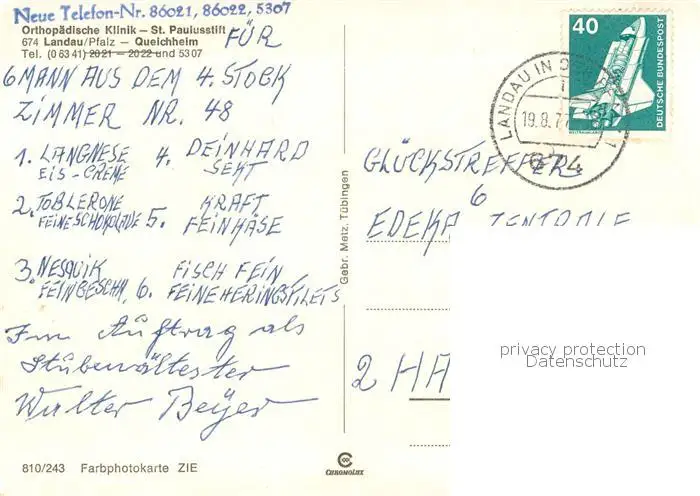 Neue Telefon-Nr. 86021, 86022, 5307
Orthopädische Klinik – St. Paulusstift
674 Landau/Pfalz – Queichheim
Tel. (0 63 41) 2021 – 2022 und 53 07
FÜR
6 MANN AUS DEM 4. STOCK
ZIMMER NR. 48
1. LANGNESE
EIS-CREME
4. DEINHARD
SEKT
2. TOBLERONE
FEINE SCHOKOLADE
5. KRAFT
FEINKÄSE
3. NESQUIK
FEINGESCHM.
6. FISCH FEIN
FEINE HERINGSFILETS
Im Auftrag als
Stubenältester
Walter Beyer
810/243 Farbphotokarte ZIE
Gebr. Metz, Tübingen
CHROMOLUX
40
DEUTSCHE BUNDESPOST
WELTRAUMLABOR
LANDAU IN
19.8.77
674
GLÜCKSTREFFER
6
EDEKA ZENTRALE
2 HA
privacy protection
Datenschutz